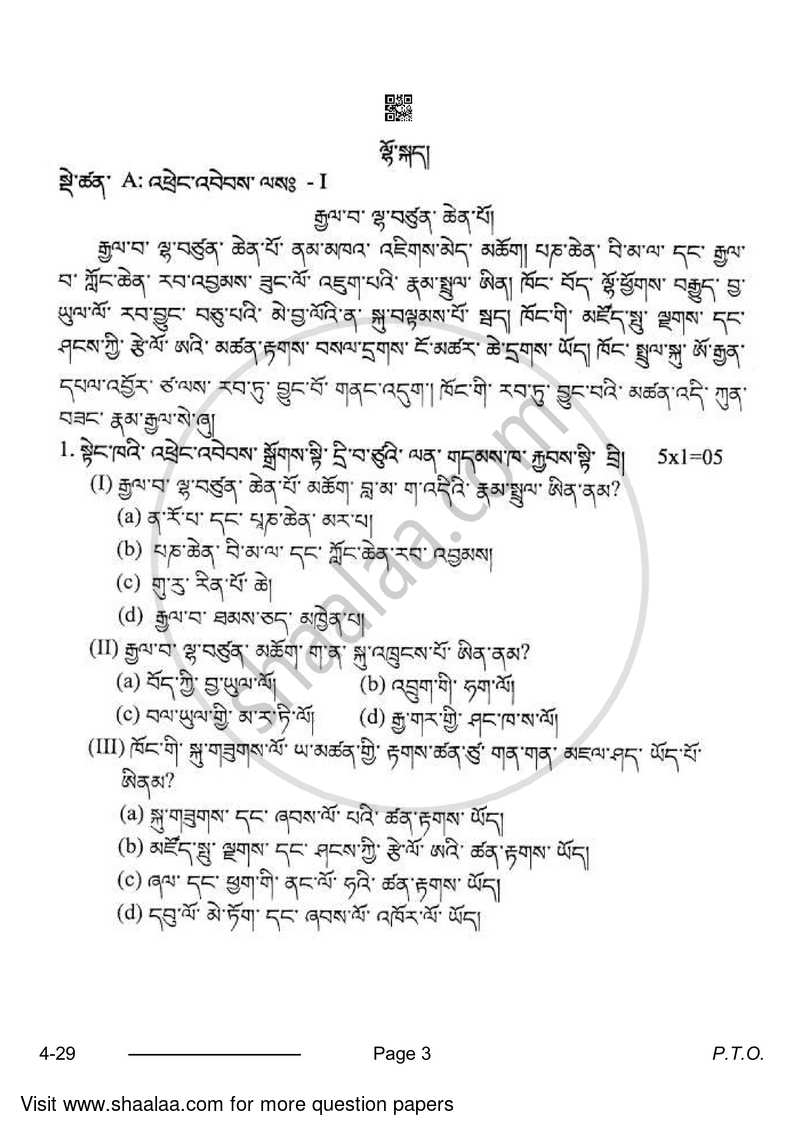 ལྷོ་སྐད།
སྡེ་ཚན་ A: འཕྲེང་འབེབས་ ལས༔ - I
རྒྱལ་བ་ ལྷ་བཙུན་ ཆེན་པོ།
རྒྱལ་བ་ ལྷ་བཙུན་ ཆེན་པོ་ ནམ་མཁའ་ འཇིགས་མེད་ མཆོག། པཎ་ཆེན་ བི་མ་ལ་ དང་ རྒྱལ་
བ་ ཀློང་ཆེན་ རབ་འབྱམས་ ཟུང་ལོ་ འཇུག་པའི་ རྣམ་སྤྲུལ་ ཨིན། ཁོང་ བོད་ ལྷོ་ཕྱོགས་ བརྒྱུད་ བྱ་
ཡུལ་ལོ་ རབ་བྱུང་ བཅུ་པའི་ མེ་བྱ་ལོའི་ན་ སྐུ་བལྟམས་པོ་ སྦད། ཁོང་གི་ མཛོད་སྤུ་ ལྗགས་ དང་
ཤངས་ཀྱི་ རྩེ་ལོ་ ཨའི་ མཚན་རྟགས་ བསལ་དྲགས་ ངོ་མཚར་ ཆེ་དྲགས་ ཡོད། ཁོང་ སྤྲུལ་སྐུ་ ཨོ་རྒྱན་
དཔལ་འབྱོར་ ཙ་ལས་ རབ་ཏུ་ བྱུང་བོ་ གནང་འདུག། ཁོང་གི་ རབ་ཏུ་ བྱུང་བའི་ མཚན་འདི་ ཀུན་
བཟང་ རྣམ་རྒྱལ་སེ་ཞུ།
1. སྟེང་ཁའི་ འཕྲེང་འབེབས་ སྒྲོགས་སྟི་ དྲི་བ་ཙུའི་ ལན་ གདམས་ཁ་ རྐྱབས་སྟི་ བྲི། 5x1=05
(I) རྒྱལ་བ་ ལྷ་བཙུན་ ཆེན་པོ་ མཆོག་ བླ་མ་ ག་འདིའི་ རྣམ་སྤྲུལ་ ཨིན་ནམ?
(a) ན་རོ་པ་ དང་ པཎ་ཆེན་ མར་པ།
(b) པཎ་ཆེན་ བི་མ་ལ་ དང་ ཀློང་ཆེན་རབ་ འབྱམས།
(c) གུ་རུ་ རིན་པོ་ ཆེ།
(d) རྒྱལ་བ་ ཐམས་ཅད་ མཁྱེན་པ།
(II) རྒྱལ་བ་ ལྷ་བཙུན་ མཆོག་ ག་ན་ སྐུ་འཁྲུངས་པོ་ ཨིན་ནམ?
(a) བོད་ཀྱི་ བྱ་ཡུལ་ལོ། (b) འབྲུག་གི་ ཧག་ལོ།
(c) བལ་ཡུལ་གྱི་ མ་ར་ཏི་ལོ། (d) རྒྱ་གར་གྱི་ ཤང་ཁ་ས་ལོ།
(III) ཁོང་གི་ སྐུ་གཟུགས་ལོ་ ཡ་མཚན་གྱི་ རྟགས་ཚན་ཙུ་ གན་གན་ མཇལ་ཤད་ ཡོད་པོ་
ཨིནམ?
(a) སྐུ་གཟུགས་ དང་ ཞབས་ལོ་ པའི་ ཚན་རྟགས་ ཡོད།
(b) མཛོད་སྤུ་ ལྗགས་ དང་ ཤངས་ཀྱི་ རྩེ་ལོ་ ཨའི་ ཚན་རྟགས་ ཡོད།
(c) ཞལ་ དང་ ཕྱག་གི་ ནང་ལོ་ ཧའི་ ཚན་རྟགས་ ཡོད།
(d) དབུ་ལོ་ མེ་ཏོག་ དང་ ཞབས་ལོ་ འཁོར་ལོ་ ཡོད།
shaalaa.com
4-29 Page 3 P.T.O.
Visit www.shaalaa.com for more question papers